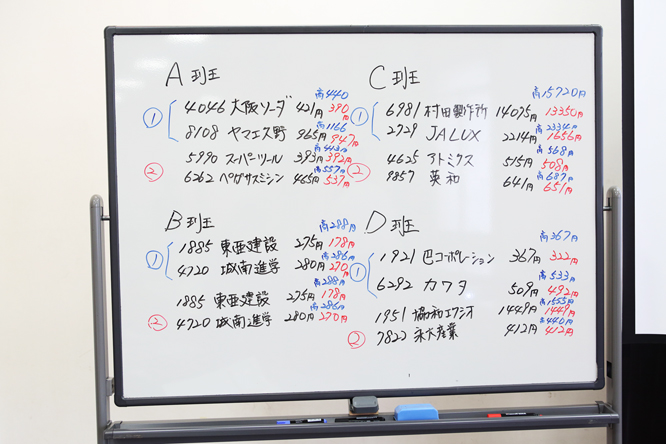 A 班
高440
① 4046 大阪ソーダ 421円 390円
高1166
8108 ヤマエ久野 965円 947円
高413円
5990 スーパーツール 393円 392円
高557円
② 6262 ペガサスミシン 465円 537円
B 班
高288円
① 1885 東亜建設 275円 178円
高286円
4720 城南進学 280円 270円
高288円
1885 東亜建設 275円 178円
高286円
② 4720 城南進学 280円 270円
C 班
高15720円
① 6981 村田製作所 14075円 13350円
高2334円
2729 JALUX 2214円 1656円
高568円
② 4625 アトミクス 515円 508円
高687円
9857 英和 641円 651円
D 班
高367円
① 1921 巴コーポレーション 367円 322円
高533
6292 カワタ 509円 492円
高1555円
1951 協和エクシオ 1449円 1449円
高440円
② 7822 永大産業 412円 412円